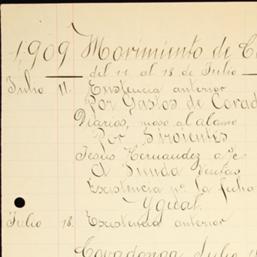 1,909 Movimiento de C
del 11 al 18 de Julio
Julio 11. Existencia anterior
Por Gastos de Corad
Diarios, mozo al alamo
Por Sirvientes
Jesus Hernandez a/c
A Tienda ventas
Existencia pa. la fecha
Ygual.
Julio 18. Existencia anterior
Covadonga Julio 1